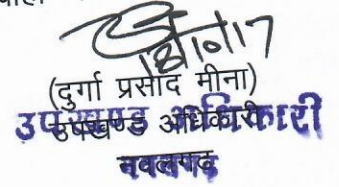 18/10/17
(दुर्गा प्रसाद मीना)
उपखण्ड अधिकारी
उपखण्ड अधिकारी
नवलगढ